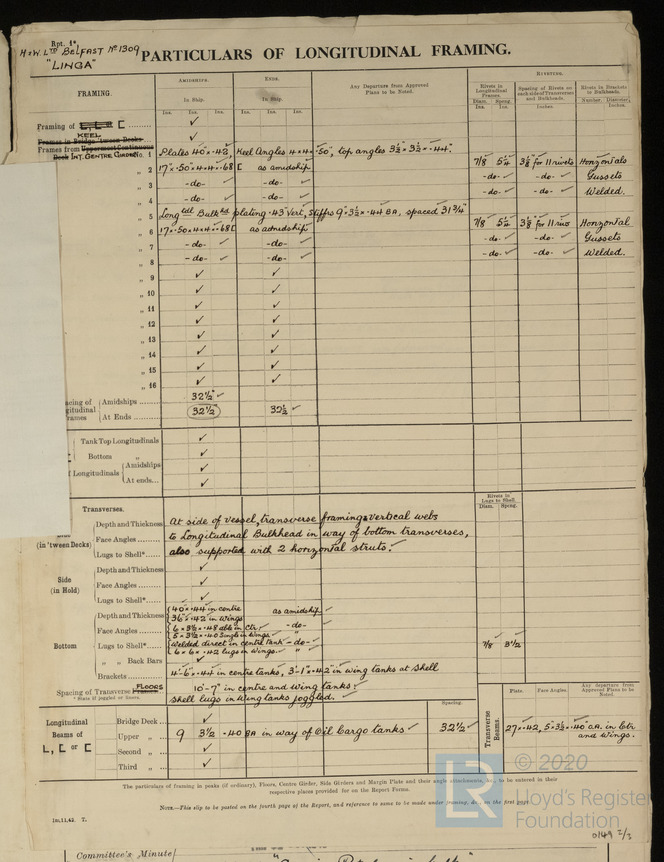 Rpt. 1*
H & W. Ltd BELFAST No 1309
"LINGA"
PARTICULARS OF LONGITUDINAL FRAMING.
FRAMING.
AMIDSHIPS.
ENDS.
Any Departure from Approved Plans to be Noted.
RIVETING.
In Ship.
In Ship.
Rivets in Longitudinal Frames.
Spacing of Rivets on each side of Transverses and Bulkheads.
Rivets in Brackets to Bulkheads.
Ins. Ins. Ins. Ins. Ins. Ins.
Diam. Spcng
Ins. Ins.
Inches.
Number. Diameter, Inches.
Framing of L, [ or [ ✓
KEEL
Frames in Bridge 'tween Decks ✓
Frames from Uppermost Continuous
Deck INT. CENTRE GIRDER No. 1 Plates 40" × .42, Keel Angles 4 × 4 × .50", top angles 3½ × 3½ × .44".
„ 2 17" × .50 × 4 × 4 × .68 [ as amidship 7/8 5¼ 3⅛ for 11 rivets Horizontals
„ 3 -do- ✓ -do- ✓ -do- ✓ -do- ✓ Gussets
„ 4 -do- ✓ -do- ✓ -do- ✓ -do- ✓ Welded.
„ 5 Long tdl Bulkhd plating .43" Vert, Stiffrs 9" × 3½ × .44 BA, spaced 31¾"
„ 6 17" × .50 × 4 × 4 × .68 [ as admidship 7/8 5¼ 3⅛ for 11 rivs Horizontal
„ 7 -do- ✓ -do- ✓ -do- ✓ -do- ✓ Gussets
„ 8 -do- ✓ -do- ✓ -do- ✓ -do- ✓ Welded.
„ 9 ✓ ✓
„ 10 ✓ ✓
„ 11 ✓ ✓
„ 12 ✓ ✓
„ 13 ✓ ✓
„ 14 ✓ ✓
„ 15 ✓ ✓
„ 16 ✓ ✓
Amidships 32½" ✓
At Ends 32½" 32½ ✓
Tank Top Longitudinals ✓
Bottom „ ✓
Longitudinals Amidships ✓
At ends ✓
Transverses.
Rivets in Lugs to Shell.
Diam. Spcng.
(in 'tween Decks)
Depth and Thickness At side of vessel, transverse framing & vertical webs
Face Angles to Longitudinal Bulkhead in way of bottom transverses,
Lugs to Shell* also supported with 2 horizontal struts. ✓
Side (in Hold)
Depth and Thickness ✓
Face Angles ✓
Lugs to Shell* ✓
Bottom
Depth and Thickness 40" × .44 in centre as amidship ✓
36" × .42 in Wings
Face Angles 6 × 3½ × .48 dble in Ctr. -do- ✓
5 × 3½ × .40 Single in Wings
Lugs to Shell* Welded direct in centre tank -do- ✓ 7/8 3½
6 × 6 × .42 lugs in Wings. „
„ „ Back Bars ✓
Brackets 4'-6" × .44 in centre tanks, 3'-1" × .42 in wing tanks at shell
FLOORS
Spacing of Transverse Frames 10'-7" in centre and wing tanks.
* State if joggled or liners. Shell lugs in Wing tanks joggled. ✓
Spacing.
Plate. Face Angles. Any departure from Approved Plans to be Noted.
Longitudinal Beams of L, [ or [
Bridge Deck ✓
Upper „ 9 3½ × .40 BA in way of Oil Cargo tanks ✓ 32½ ✓
Second „ ✓
Third „ ✓
Transverse Beams.
27 × .42, 5 × 3½ × .40 o.a. in Ctr and wings.
The particulars of framing in peaks (if ordinary), Floors, Centre Girder, Side Girders and Margin Plate and their angle attachments, &c., to be entered in their
respective places provided for on the Report Forms.
NOTE.—This slip to be posted on the fourth page of the Report, and reference to same to be made under framing, &c., on the first page.
1m.11,42. 7.
© 2020
Lloyd's Register
Foundation
0149 2/2
Committee's Minute